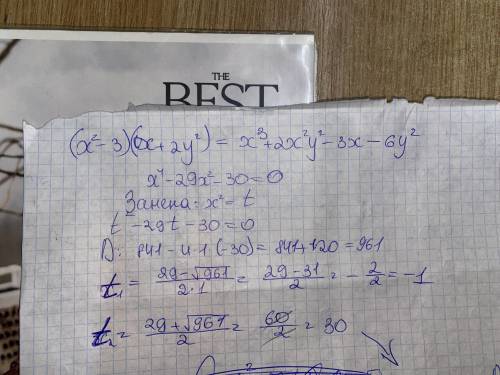 THE
BEST
(x²-3)(x+2y²) = x³+2x²y²-3x-6y²
x⁴-29x²-30=0
Замена: x²=t
t²-29t-30=0
D: 841-4·1(-30)=841+120=961
t₁ = (29-√961)/(2·1) = (29-31)/2 = -2/2 = -1
t₂ = (29+√961)/2 = 60/2 = 30